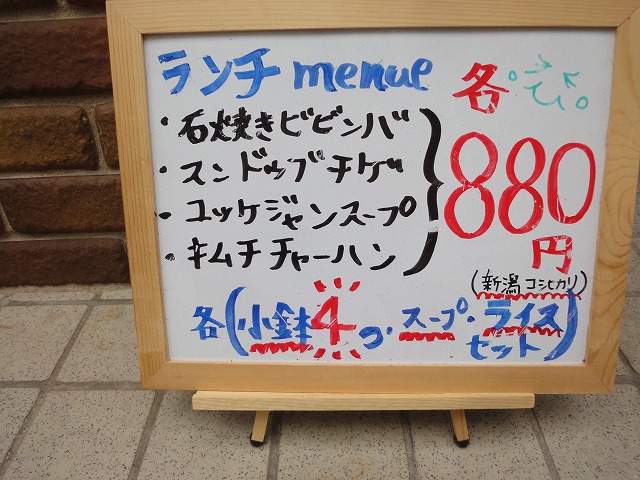 ランチ menue
各
・石焼きビビンバ
・スンドゥブチゲ
・ユッケジャンスープ
・キムチチャーハン
880
円
(新潟コシヒカリ)
各(小鉢4つ・スープ・ライス
セット)